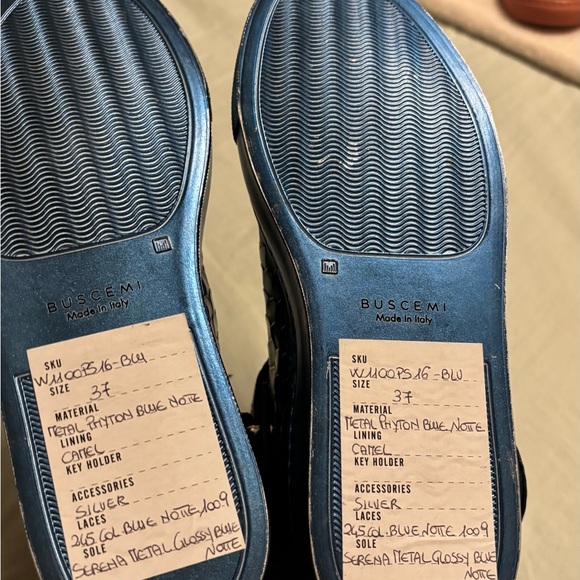 BUSCEMI
Made in Italy
SKU
W1100PS16-BLU
SIZE
37
MATERIAL
METAL PHYTON BLUE NOTTE
LINING
CAMEL
KEY HOLDER
ACCESSORIES
SILVER
LACES
245 COL. BLUE NOTTE 1009
SOLE
SERENA METAL GLOSSY BLUE
NOTTE
BUSCEMI
Made in Italy
SKU
W1100PS16-BLU
SIZE
37
MATERIAL
METAL PHYTON BLUE NOTTE
LINING
CAMEL
KEY HOLDER
ACCESSORIES
SILVER
LACES
245 COL. BLUE NOTTE 1009
SOLE
SERENA METAL GLOSSY BLUE
NOTTE